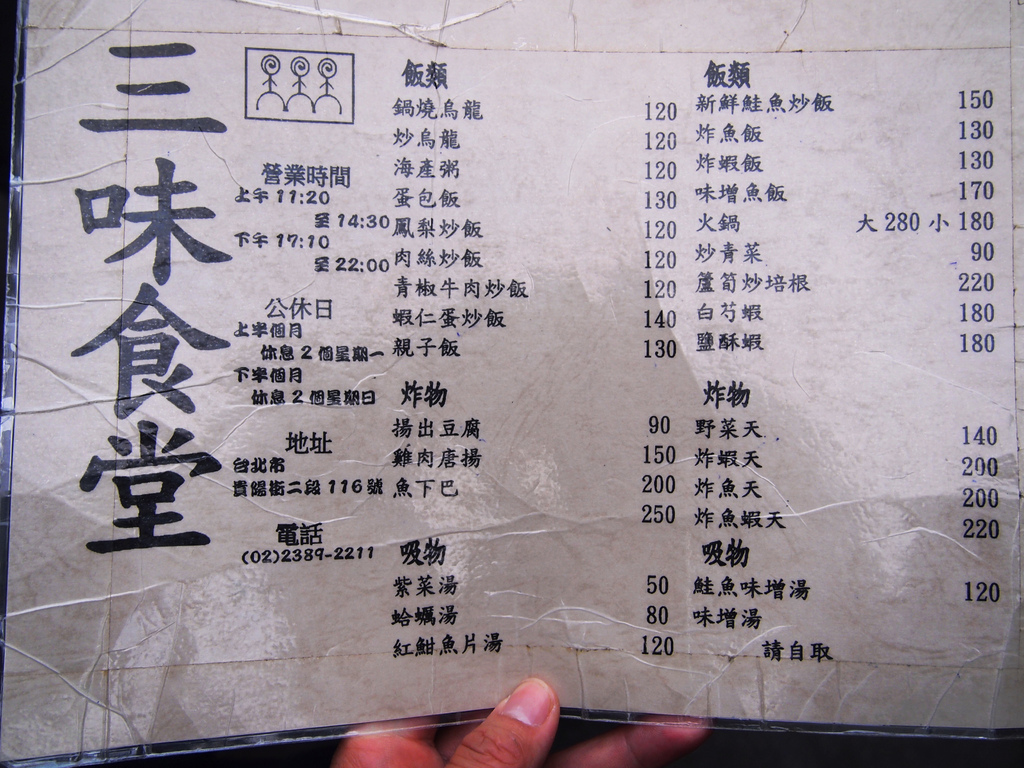 三味食堂
營業時間
上午 11:20
至 14:30
下午 17:10
至 22:00
公休日
上半個月
休息 2 個星期一
下半個月
休息 2 個星期日
地址
台北市
貴陽街二段 116 號
電話
(02)2389-2211
飯類
鍋燒烏龍 120
炒烏龍 120
海產粥 120
蛋包飯 130
鳳梨炒飯 120
肉絲炒飯 120
青椒牛肉炒飯 120
蝦仁蛋炒飯 140
親子飯 130
炸物
揚出豆腐 90
雞肉唐揚 150
魚下巴 200
250
吸物
紫菜湯 50
蛤蠣湯 80
紅魽魚片湯 120
飯類
新鮮鮭魚炒飯 150
炸魚飯 130
炸蝦飯 130
味增魚飯 170
火鍋 大 280 小 180
炒青菜 90
蘆筍炒培根 220
白芍蝦 180
鹽酥蝦 180
炸物
野菜天 140
炸蝦天 200
炸魚天 200
炸魚蝦天 220
吸物
鮭魚味增湯 120
味增湯
請自取